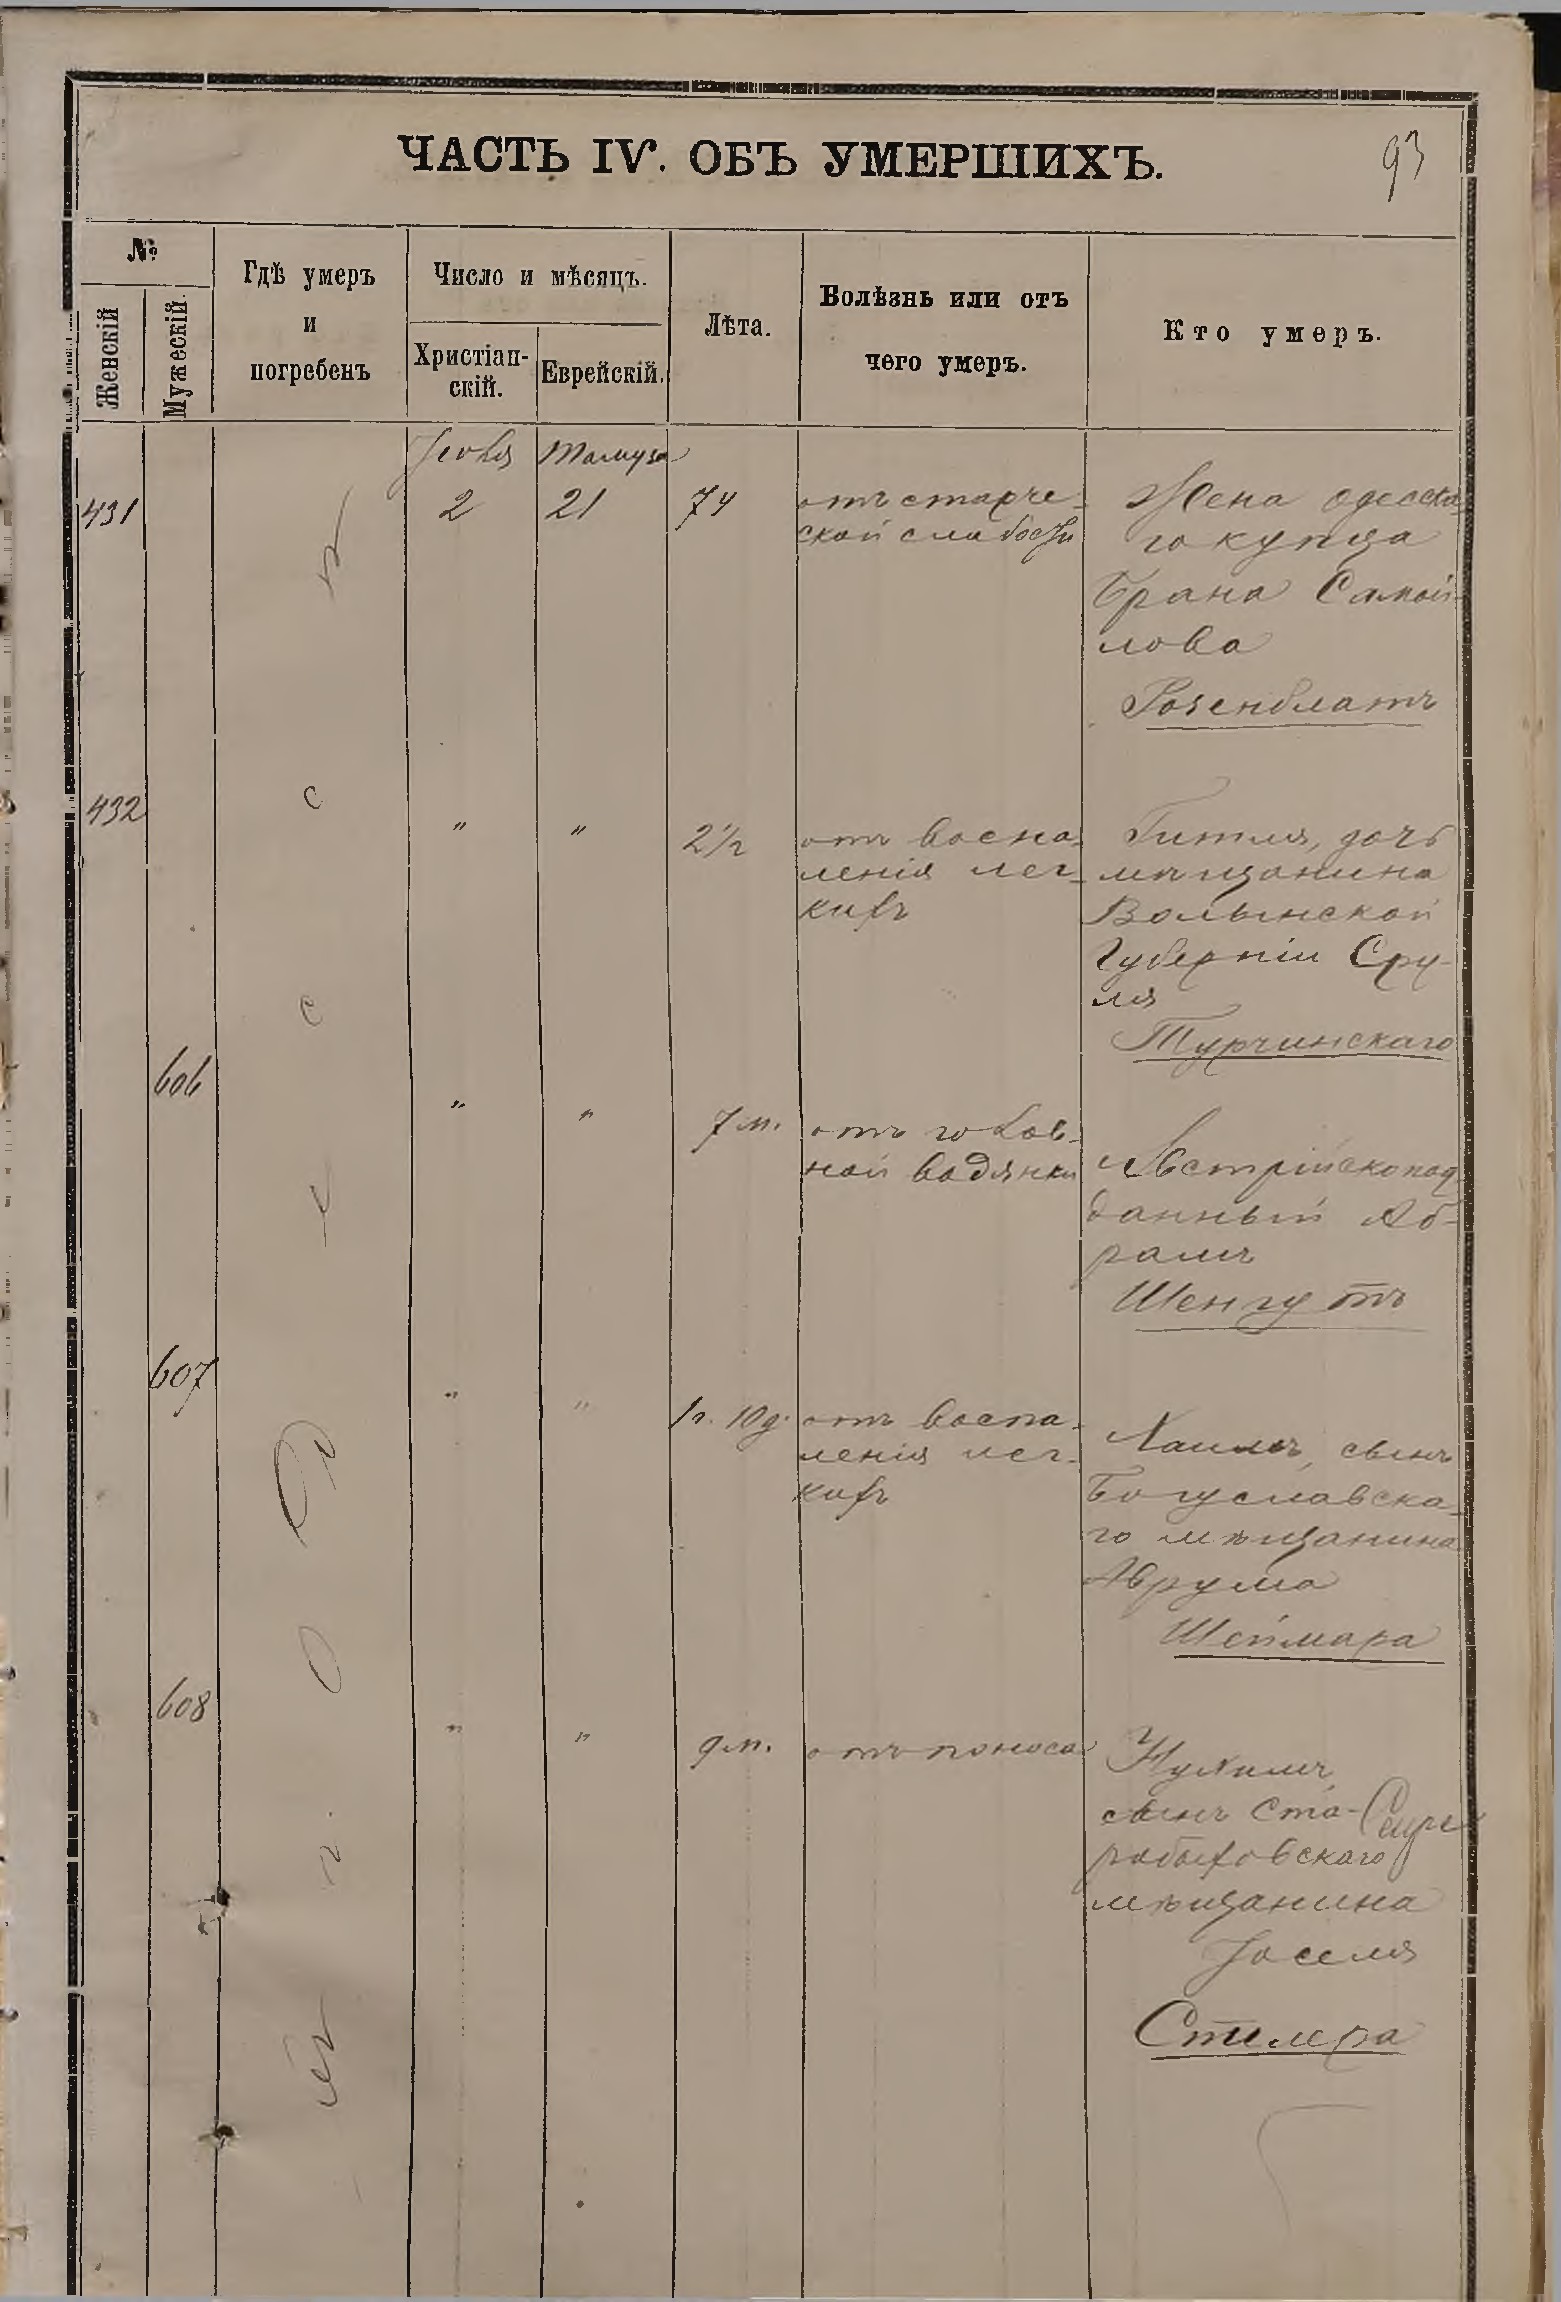 ЧАСТЬ IV. ОБЪ УМЕРШИХЪ.
93
№
Женскій
Мужескій.
Гдѣ умеръ
и
погребенъ
Число и мѣсяцъ.
Христіан-
скій.
Еврейскій.
Лѣта.
Болѣзнь или отъ
чего умеръ.
Кто умеръ.
Іюля Тамуза
431 2 21 74 отъ старче- Жена одесска-
ской слабости го купца
Брана Самой-
лова
Розенблатъ
432 " " 2½ отъ воспа- Гитля, дочь
ленія лег- мѣщанина
кихъ Волынской
Губерніи Сру-
ля
Турчинскаго
606 " " 7 м. отъ голов-
ной водянки Австрійскопод
данный Аб-
рамъ
Шенгутъ
607 " " 1 г. 10 д. отъ воспа-
ленія лег- Хаимъ, сынъ
кихъ Богуславска-
го мѣщанина
Аврума
Шеймара
608 " " 9 м. отъ поноса Нухимъ,
сынъ Ста-
робыховскаго
мѣщанина
Іоселя
Стилера